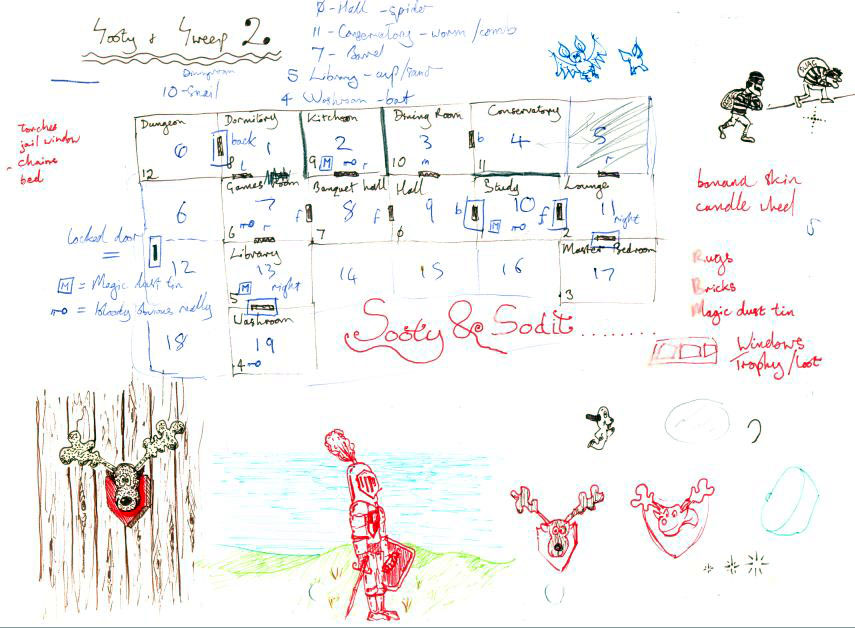 Sooty & Sweep 2.
0 - Hall - spider
11 - Conservatory - worm / comb
7 - Barrel
5 Library - cup/sand
10 - Snail
4 Washroom - bat
SWAG
Torches
jail window
- chains
bed
Dungeon 0 12
Dormitory back 1 8 L
Kitchen 2 9 M r
Dining Room 3 10 m
Conservatory b 4 11
5 r
6
Games Room 7 6 r
Banquet hall f 8 7
Hall f 9 6
Study b 10 M f
Lounge 11 right 2
Locked door
=
12
M = Magic dust tin
= bloody obvious really
Library 13 M right 5
14
15
16
Master Bedroom 17 3
18
Washroom 19 4
banana skin
candle wheel
5
Rugs
Bricks
Magic dust tin
Windows
Trophy/loot
Sooty & Sodit........